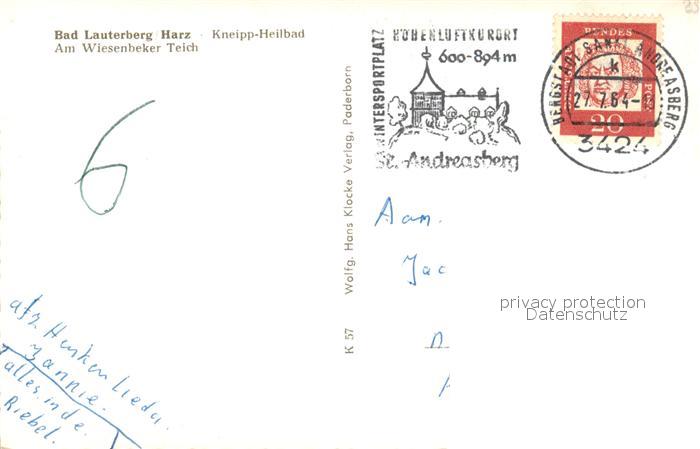 Bad Lauterberg/Harz · Kneipp-Heilbad
Am Wiesenbeker Teich
6
K 57 Wolfg. Hans Klocke Verlag, Paderborn
WINTERSPORTPLATZ
HÖHENLUFTKURORT
600-894m
St. Andreasberg
BERGSTADT SANKT ANDREASBERG
k
27.7.64-
3424
BUNDES
20
Aan.
Jac
privacy protection
Datenschutz
afz.
alles in de
Riebel.